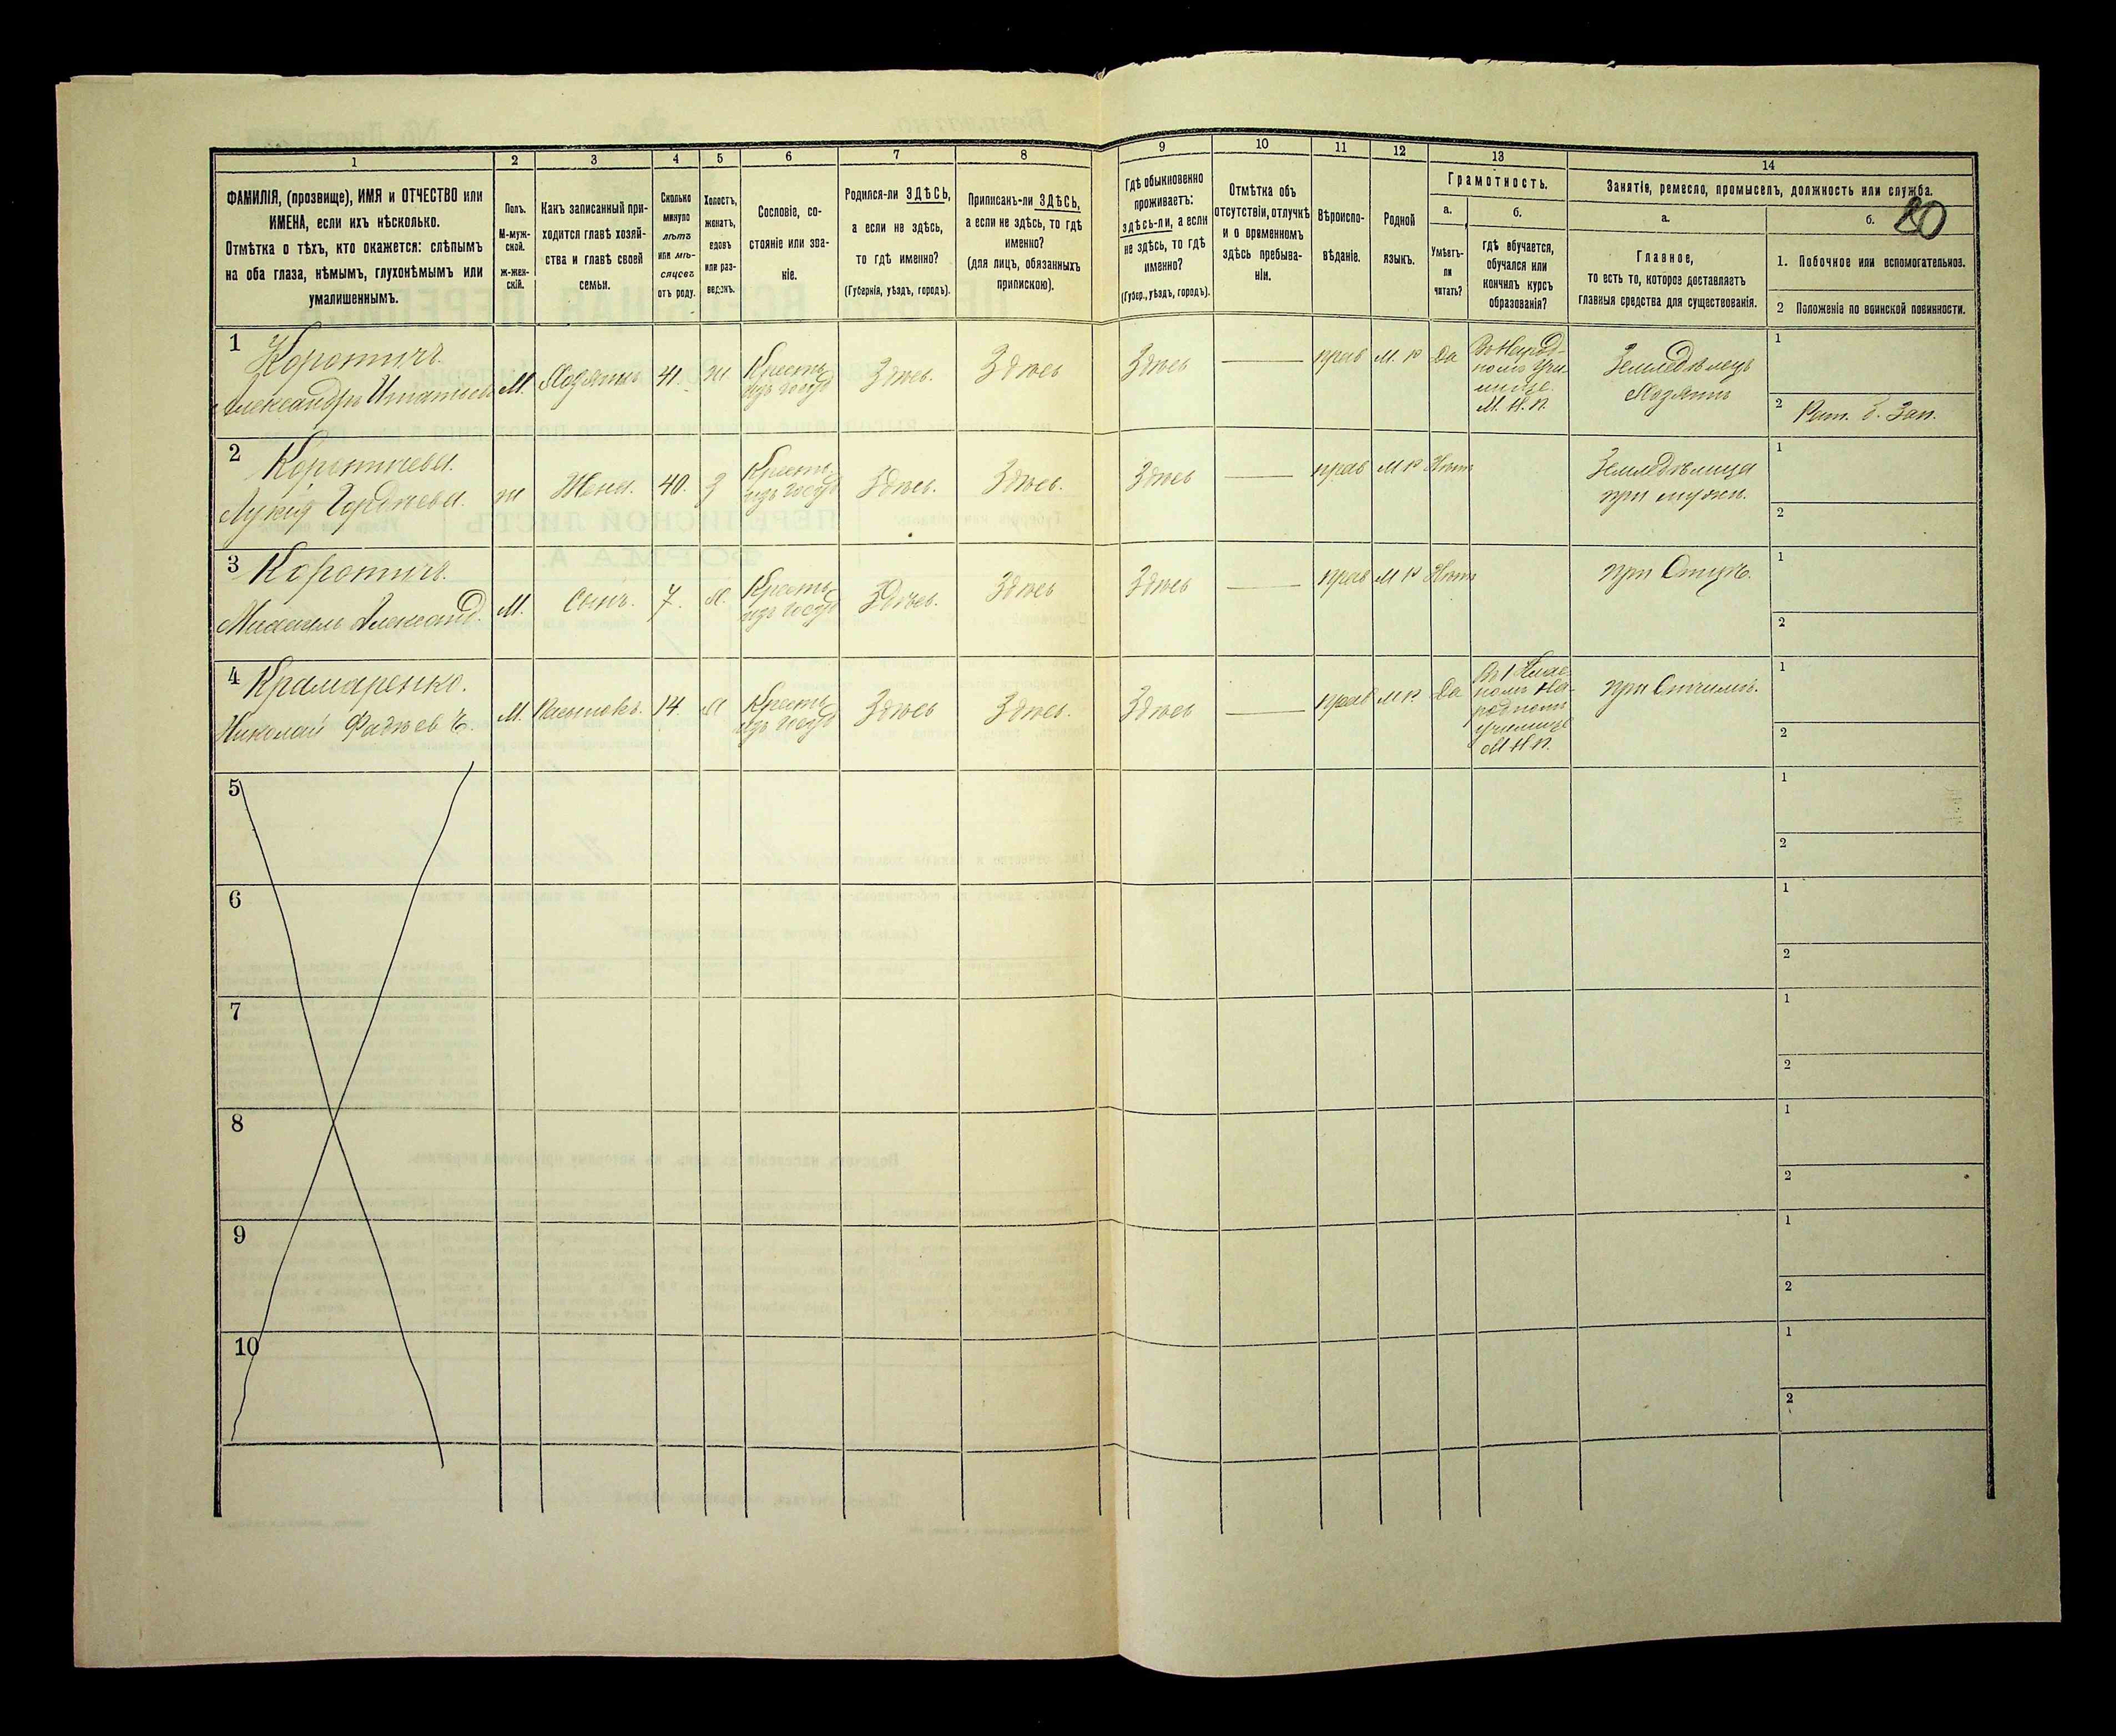 1
2
3
4
5
6
7
8
9
10
11
12
13
14
ФАМИЛІЯ, (прозвище), ИМЯ и ОТЧЕСТВО или
ИМЕНА, если ихъ нѣсколько.
Отмѣтка о тѣхъ, кто окажется: слѣпымъ
на оба глаза, нѣмымъ, глухонѣмымъ или
умалишеннымъ.
Полъ.
М-муж-
ской.
ж-жен-
скій.
Какъ записанный при-
ходится главѣ хозяй-
ства и главѣ своей
семьи.
Сколько
минуло
лѣтъ
или мѣ-
сяцевъ
отъ роду.
Холостъ,
женатъ,
вдовъ
или раз-
веденъ.
Сословіе, со-
стояніе или зва-
ніе.
Родился-ли ЗДѢСЬ,
а если не здѣсь,
то гдѣ именно?
(Губернія, уѣздъ, городъ).
Приписанъ-ли ЗДѢСЬ,
а если не здѣсь, то гдѣ
именно?
(для лицъ, обязанныхъ
припискою).
Гдѣ обыкновенно
проживаетъ:
здѣсь-ли, а если
не здѣсь, то гдѣ
именно?
(Губер., уѣздъ, городъ).
Отмѣтка объ
отсутствіи, отлучкѣ
и о временномъ
здѣсь пребыва-
ніи.
Вѣроиспо-
вѣданіе.
Родной
языкъ.
Грамотность.
а.
б.
Умѣетъ-
ли
читать?
гдѣ обучается,
обучался или
кончилъ курсъ
образованія?
Занятіе, ремесло, промыселъ, должность или служба.
а.
б.
20
Главное,
то есть то, которое доставляетъ
главныя средства для существованія.
1. Побочное или вспомогательное.
2 Положеніе по воинской повинности.
1
Коротичъ.
Александръ Игнатьев
М.
Хозяинъ
41.
ж.
Кресть.
изъ госуд
Здѣсь.
Здѣсь
Здѣсь
прав
М. р
Да
Въ Народ-
номъ Учи-
лище.
М. Н. П.
Земледѣлецъ
Хозяинъ
1
2 Рат. 2. Зап.
2
Коротичева.
Лукія Гордѣева.
ж
Жена.
40.
З
Кресть.
изъ госуд
Здѣсь.
Здѣсь.
Здѣсь
прав
М р
Нѣтъ
Земледѣлица
при мужѣ.
1
2
3
Коротичъ.
Михаилъ Александ.
М.
Сынъ.
7.
Х.
Кресть.
изъ госуд
Здѣсь.
Здѣсь
Здѣсь
прав
М р
Нѣтъ
при Отцѣ.
1
2
4
Крамаренко.
Николай Фадѣев
М.
Пасынокъ.
14
Х
Кресть.
изъ госуд
Здѣсь
Здѣсь.
Здѣсь
прав
М р.
Да
Въ 1 Клас-
номъ На-
родномъ
училище
М Н П.
при Отчимѣ.
1
2
5
1
2
6
1
2
7
1
2
8
1
2
9
1
2
10
1
2